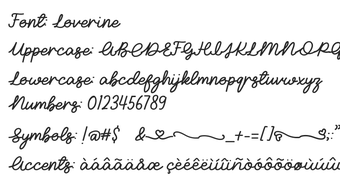 Font: Loverine
Uppercase: ABCDEFGHIJKLMNOPQ
Lowercase: abcdefghijklmnopqrstuvwxyz
Numbers: 0123456789
Symbols: !@#$ & _+-=[];:"
Accents: àáâãäåæ çèéêëìíîïñòóôõöøùúûü